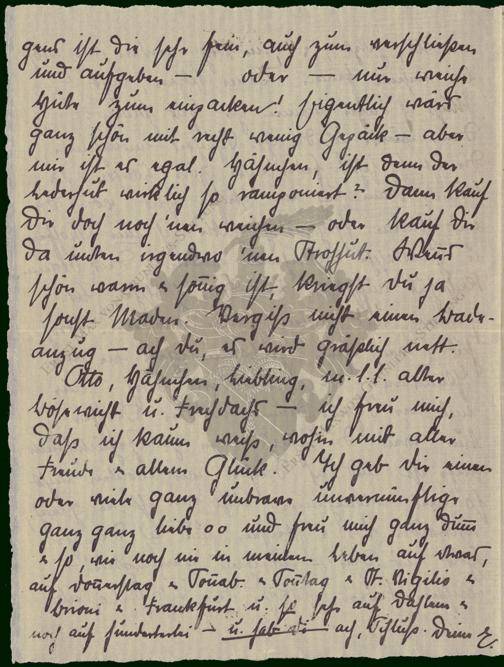 gens ist die sehr fein, auch zum verschließen
und aufgeben — oder — nur weiche
Hüte zum einpacken! Eigentlich wärs
ganz schön mit recht wenig Gepäck — aber
mir ist es egal. Hähnchen, ist denn der
Lederhut wirklich so ramponiert? Dann kauf
Dir doch noch 'nen weichen — oder kauf Dir
da unten irgendwo 'nen Strohhut. Wenns
schön warm & sonnig ist, kriegst Du ja
sonst Maden. Vergiß nicht einen Bade-
anzug — ach Du, es wird gräßlich nett.
Otto, Hähnchen, Liebling, m. l. l. alter
Bösewicht u. Frechdachs — ich freu mich,
daß ich kaum weiß, wohin mit aller
Freude & allem Glück. Ich geb Dir einen
oder viele ganz unbrave unvernünftige
ganz ganz liebe oo und freu mich ganz dumm
& so, wie noch nie in meinem Leben auf etwas,
auf Donnerstag & Sonnab. & Sonntag & St. Vigilio &
Brioni & Frankfurt u. so sehr auf Dahlem &
noch auf hunderterlei — u. hab Di ach, Schluß. Deine